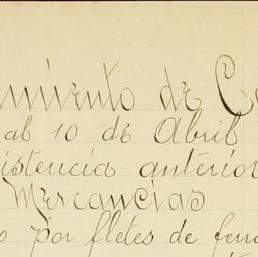 imiento de C
al 10 de Abril
istencia anterior
Mercancias
o por fletes de ferro